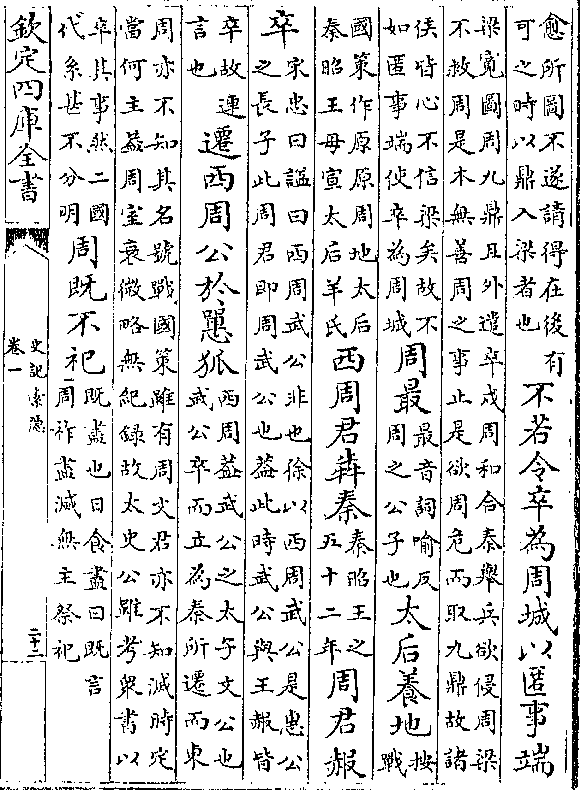 愈所圖不遂請得在後有
可之時以鼎入梁者也
不若令卒為周城以匿事端
梁寛圖周九鼎且外遣卒戍周和合秦舉兵欲侵周梁
不救周是本無善周之事止是欲周危而取九鼎故諸
侯皆心不信梁矣故不
如匿事端使卒為周城
周最
最音詞喻反
周之公子也
太后養地
按
戰
國策作原原周地太后
秦昭王母宣太后羋氏
西周君犇秦
秦昭王之
五十二年
周君赧
卒
宋忠曰諡曰西周武公非也徐以西周武公是惠公
之長子此周君即周武公也葢此時武公與王赧皆
卒故連
言也
遷西周公於狐
西周葢武公之太子文公也
武公卒而立為秦所遷而東
周亦不知其名號戰國策雖有周文君亦不知滅時定
當何主葢周室衰微略無紀録故太史公雖考衆書以
卒其事然二國
代系甚不分明
周既不祀
既盡也日食盡曰既言
周祚盡滅無主祭祀
欽定四庫全書
史記索隱
卷一
二十二